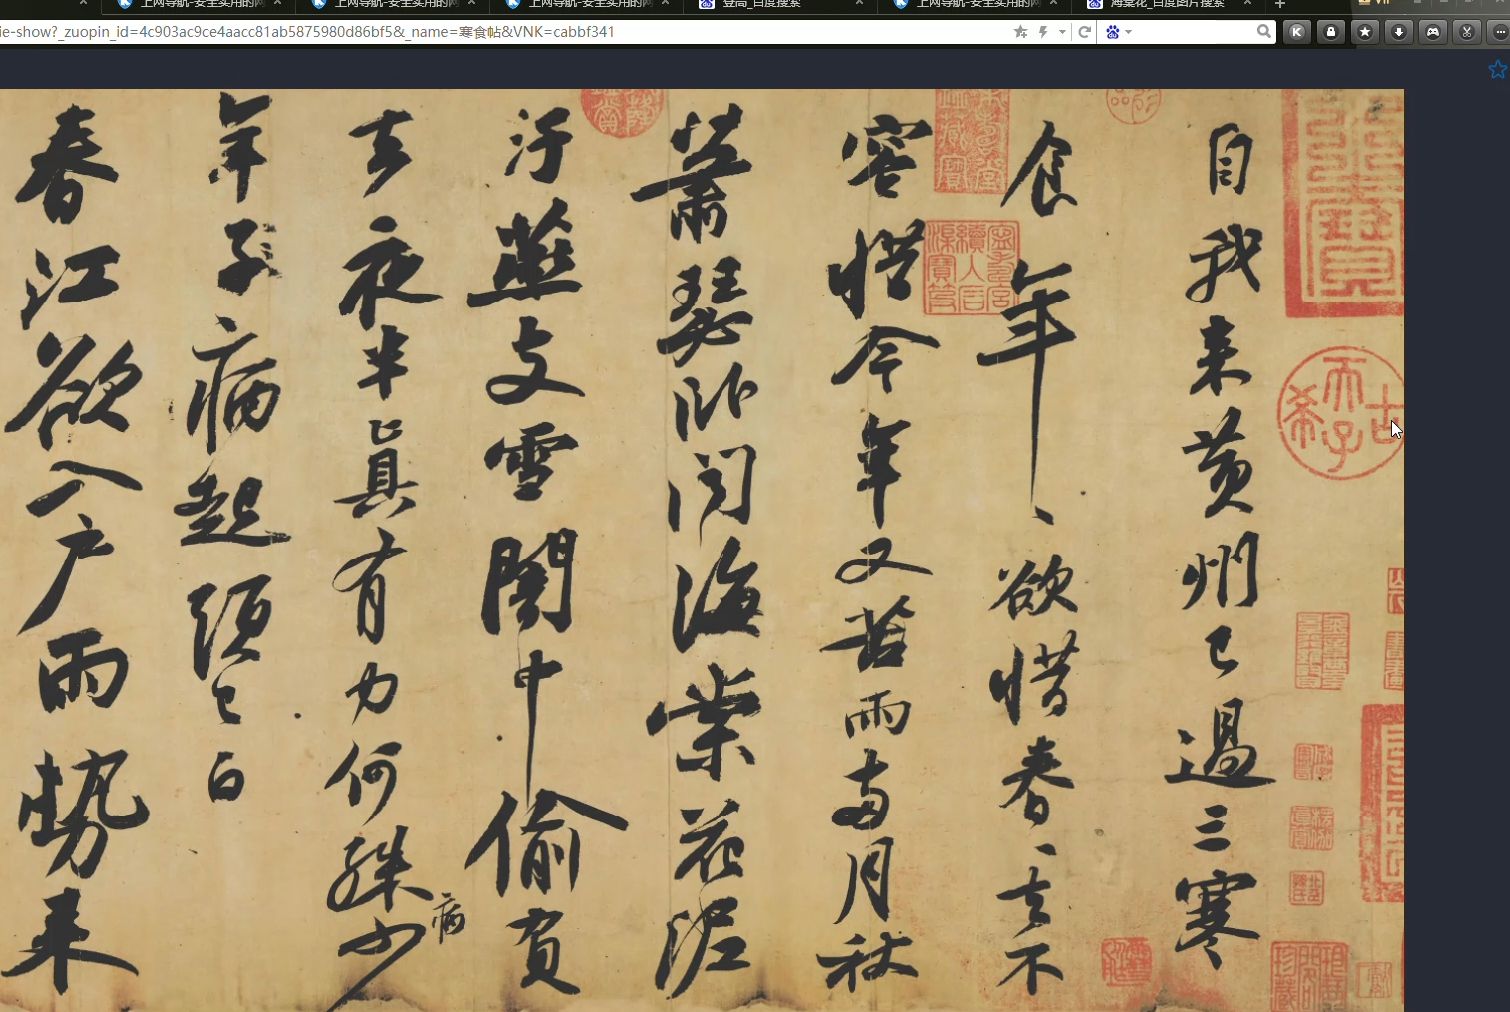 上网导航-安全实用的网
上网导航-安全实用的网
上网导航-安全实用的网
登高_百度搜索
上网导航-安全实用的网
海棠花_百度图片搜索
ie-show?_zuopin_id=4c903ac9ce4aacc81ab5875980d86bf5&_name=寒食帖&VNK=cabbf341
自我来黄州已過三寒
食年、欲惜春、去不
容惜今年又苦雨兩月秋
蕭瑟卧聞海棠花泥
汙燕支雪闇中偷負
去夜半真有力何殊少
病
年子病起頭已白
春江欲入户雨勢来
古希天子